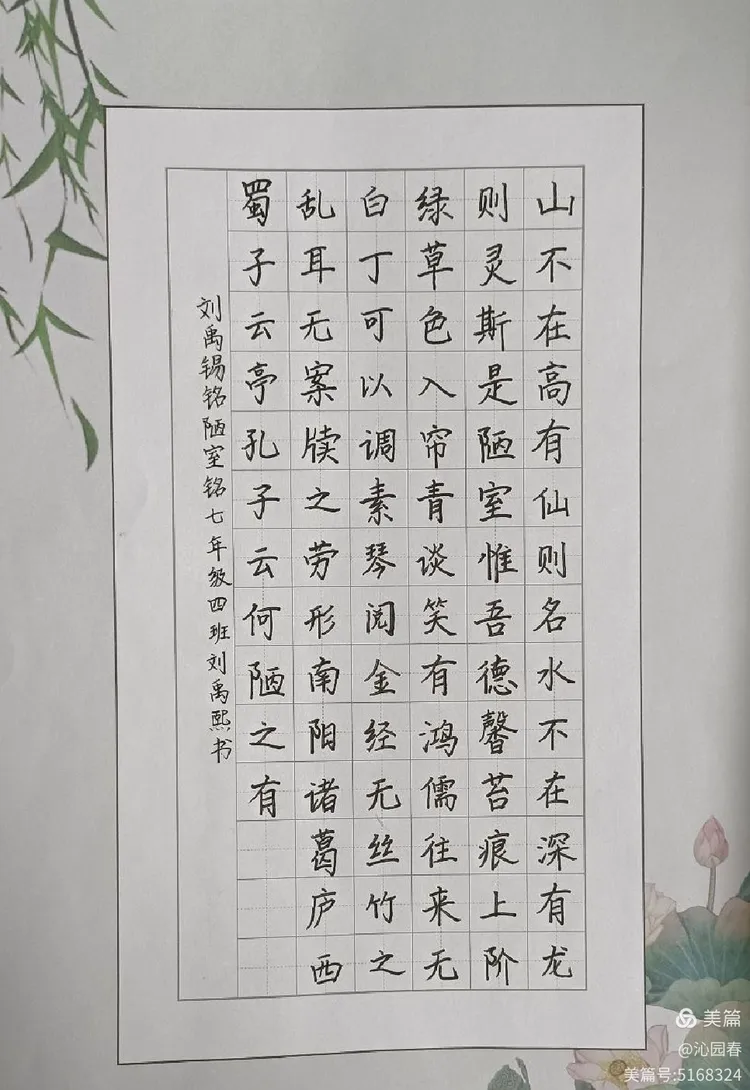 山不在高有仙则名水不在深有龙
则灵斯是陋室惟吾德馨苔痕上阶
绿草色入帘青谈笑有鸿儒往来无
白丁可以调素琴阅金经无丝竹之
乱耳无案牍之劳形南阳诸葛庐西
蜀子云亭孔子云何陋之有
刘禹锡铭陋室铭七年级四班刘禹熙书
美篇
@沁园春
美篇号:5168324